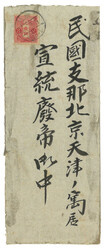 民國支那北京天津ノ寓居
宣統廢帝御中